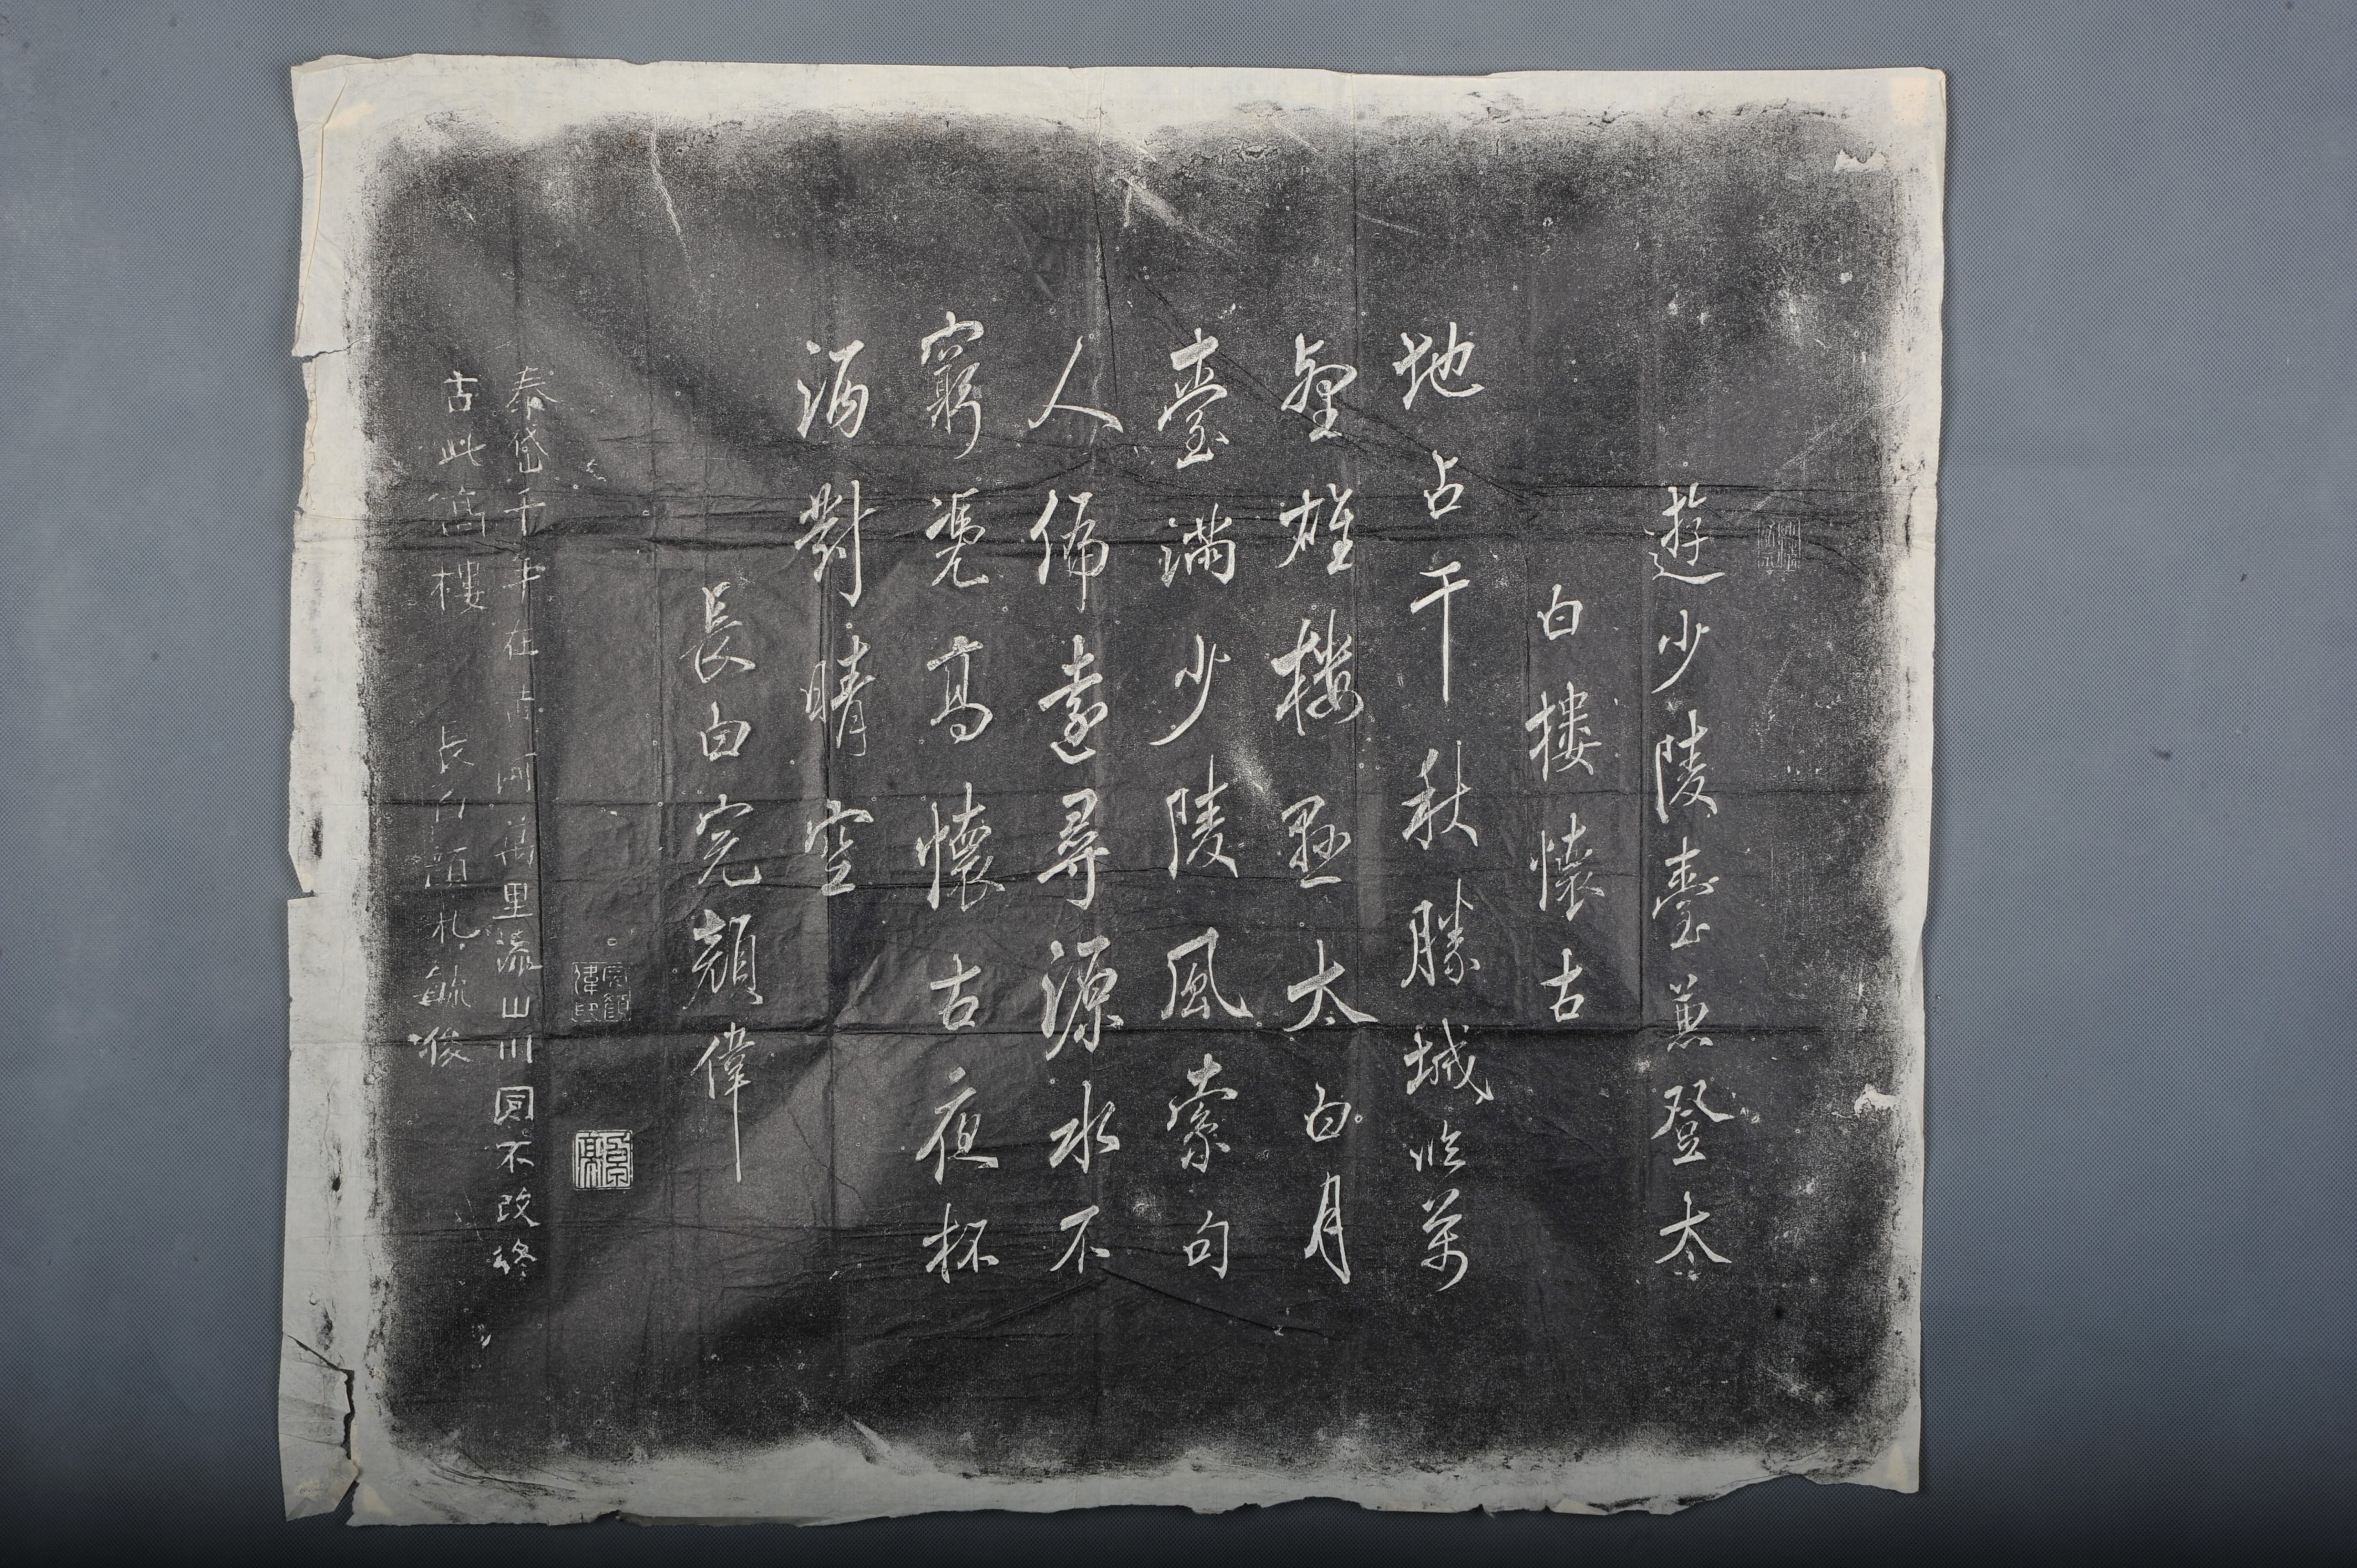 遊少陵臺兼登太
白樓懷古
地占千秋勝城臨萬
壑雄楼懸太白月
臺滿少陵風索句
人偏遠尋源水不
窮憑高懷古夜杯
酒對晴空
長白完顏偉
完顏偉印
泰岱千年在河萬里流山川固不改終
古此高樓 長白顏札毓俊